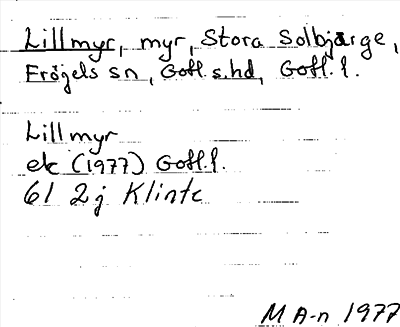 Lillmyr, myr, Stora Solbjärge,
Fröjels sn, Gotl. s. hd, Gotl. l.
Lillmyr
ek (1977) Gotl. l.
61 2j Klinte
M A-n 1977